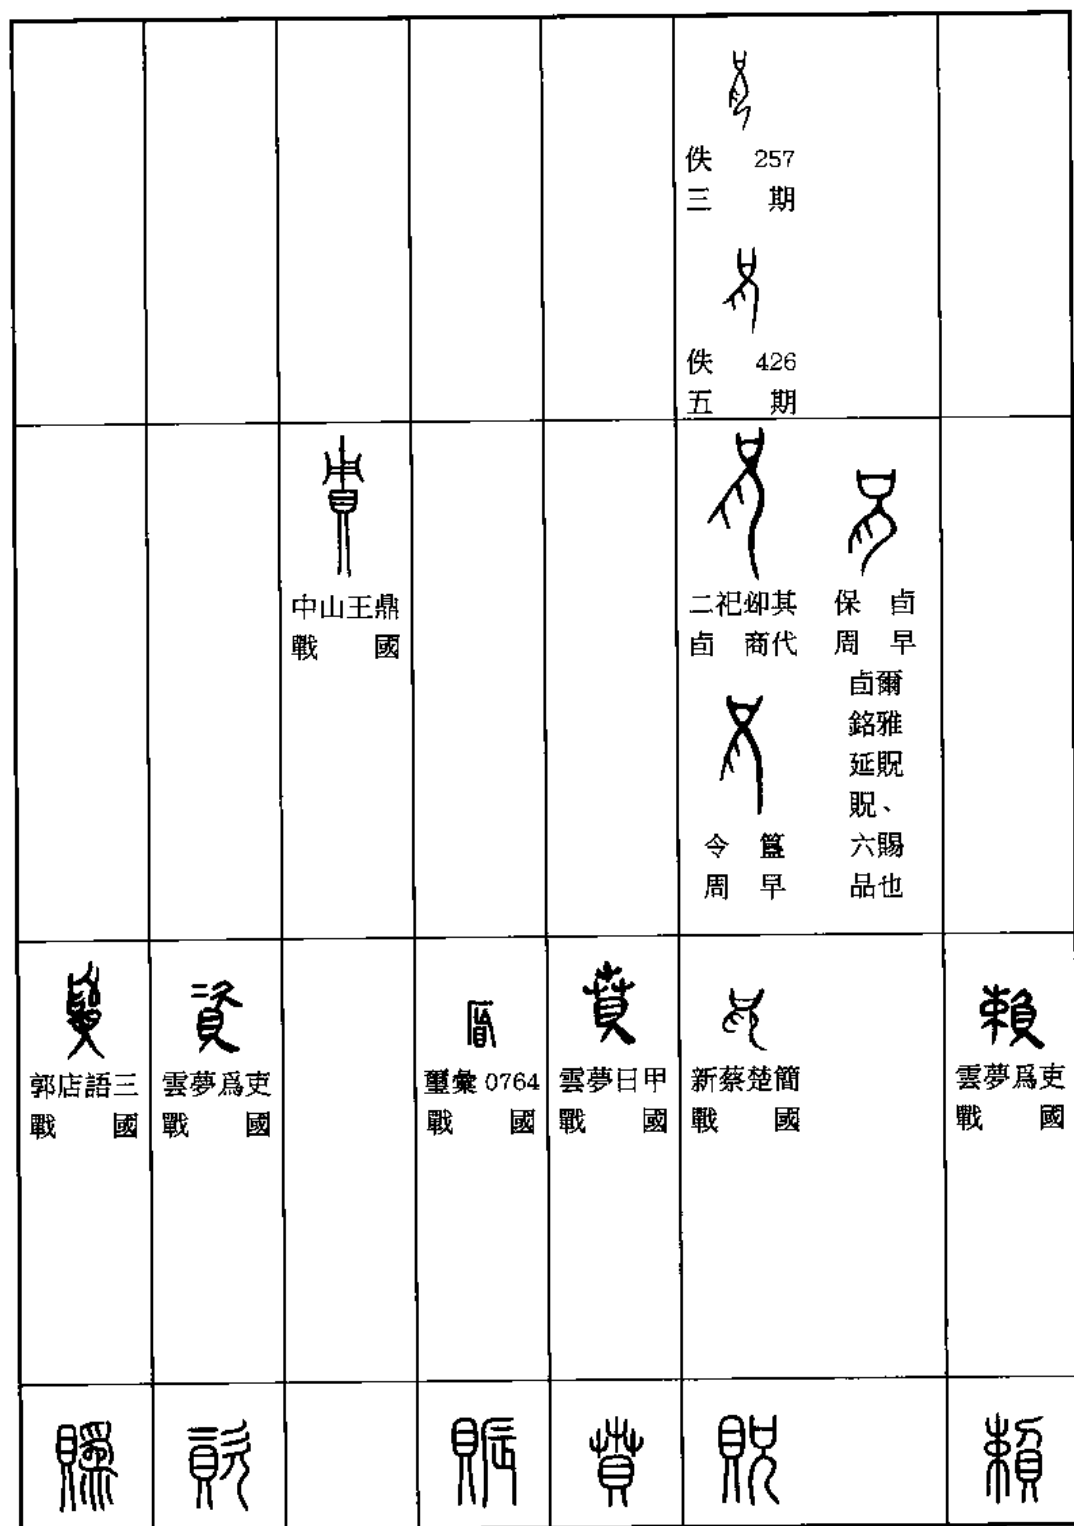 佚 257
三期
佚 426
五期
中山王鼎
戰國
二祀𠨘其
卣 商代
保卣
周早
爾雅貺、賜也
卣銘延貺六品
令簋
周早
郭店語三
戰國
雲夢爲吏
戰國
璽彙 0764
戰國
雲夢日甲
戰國
新蔡楚簡
戰國
雲夢爲吏
戰國
資
賑
賁
貺
賴